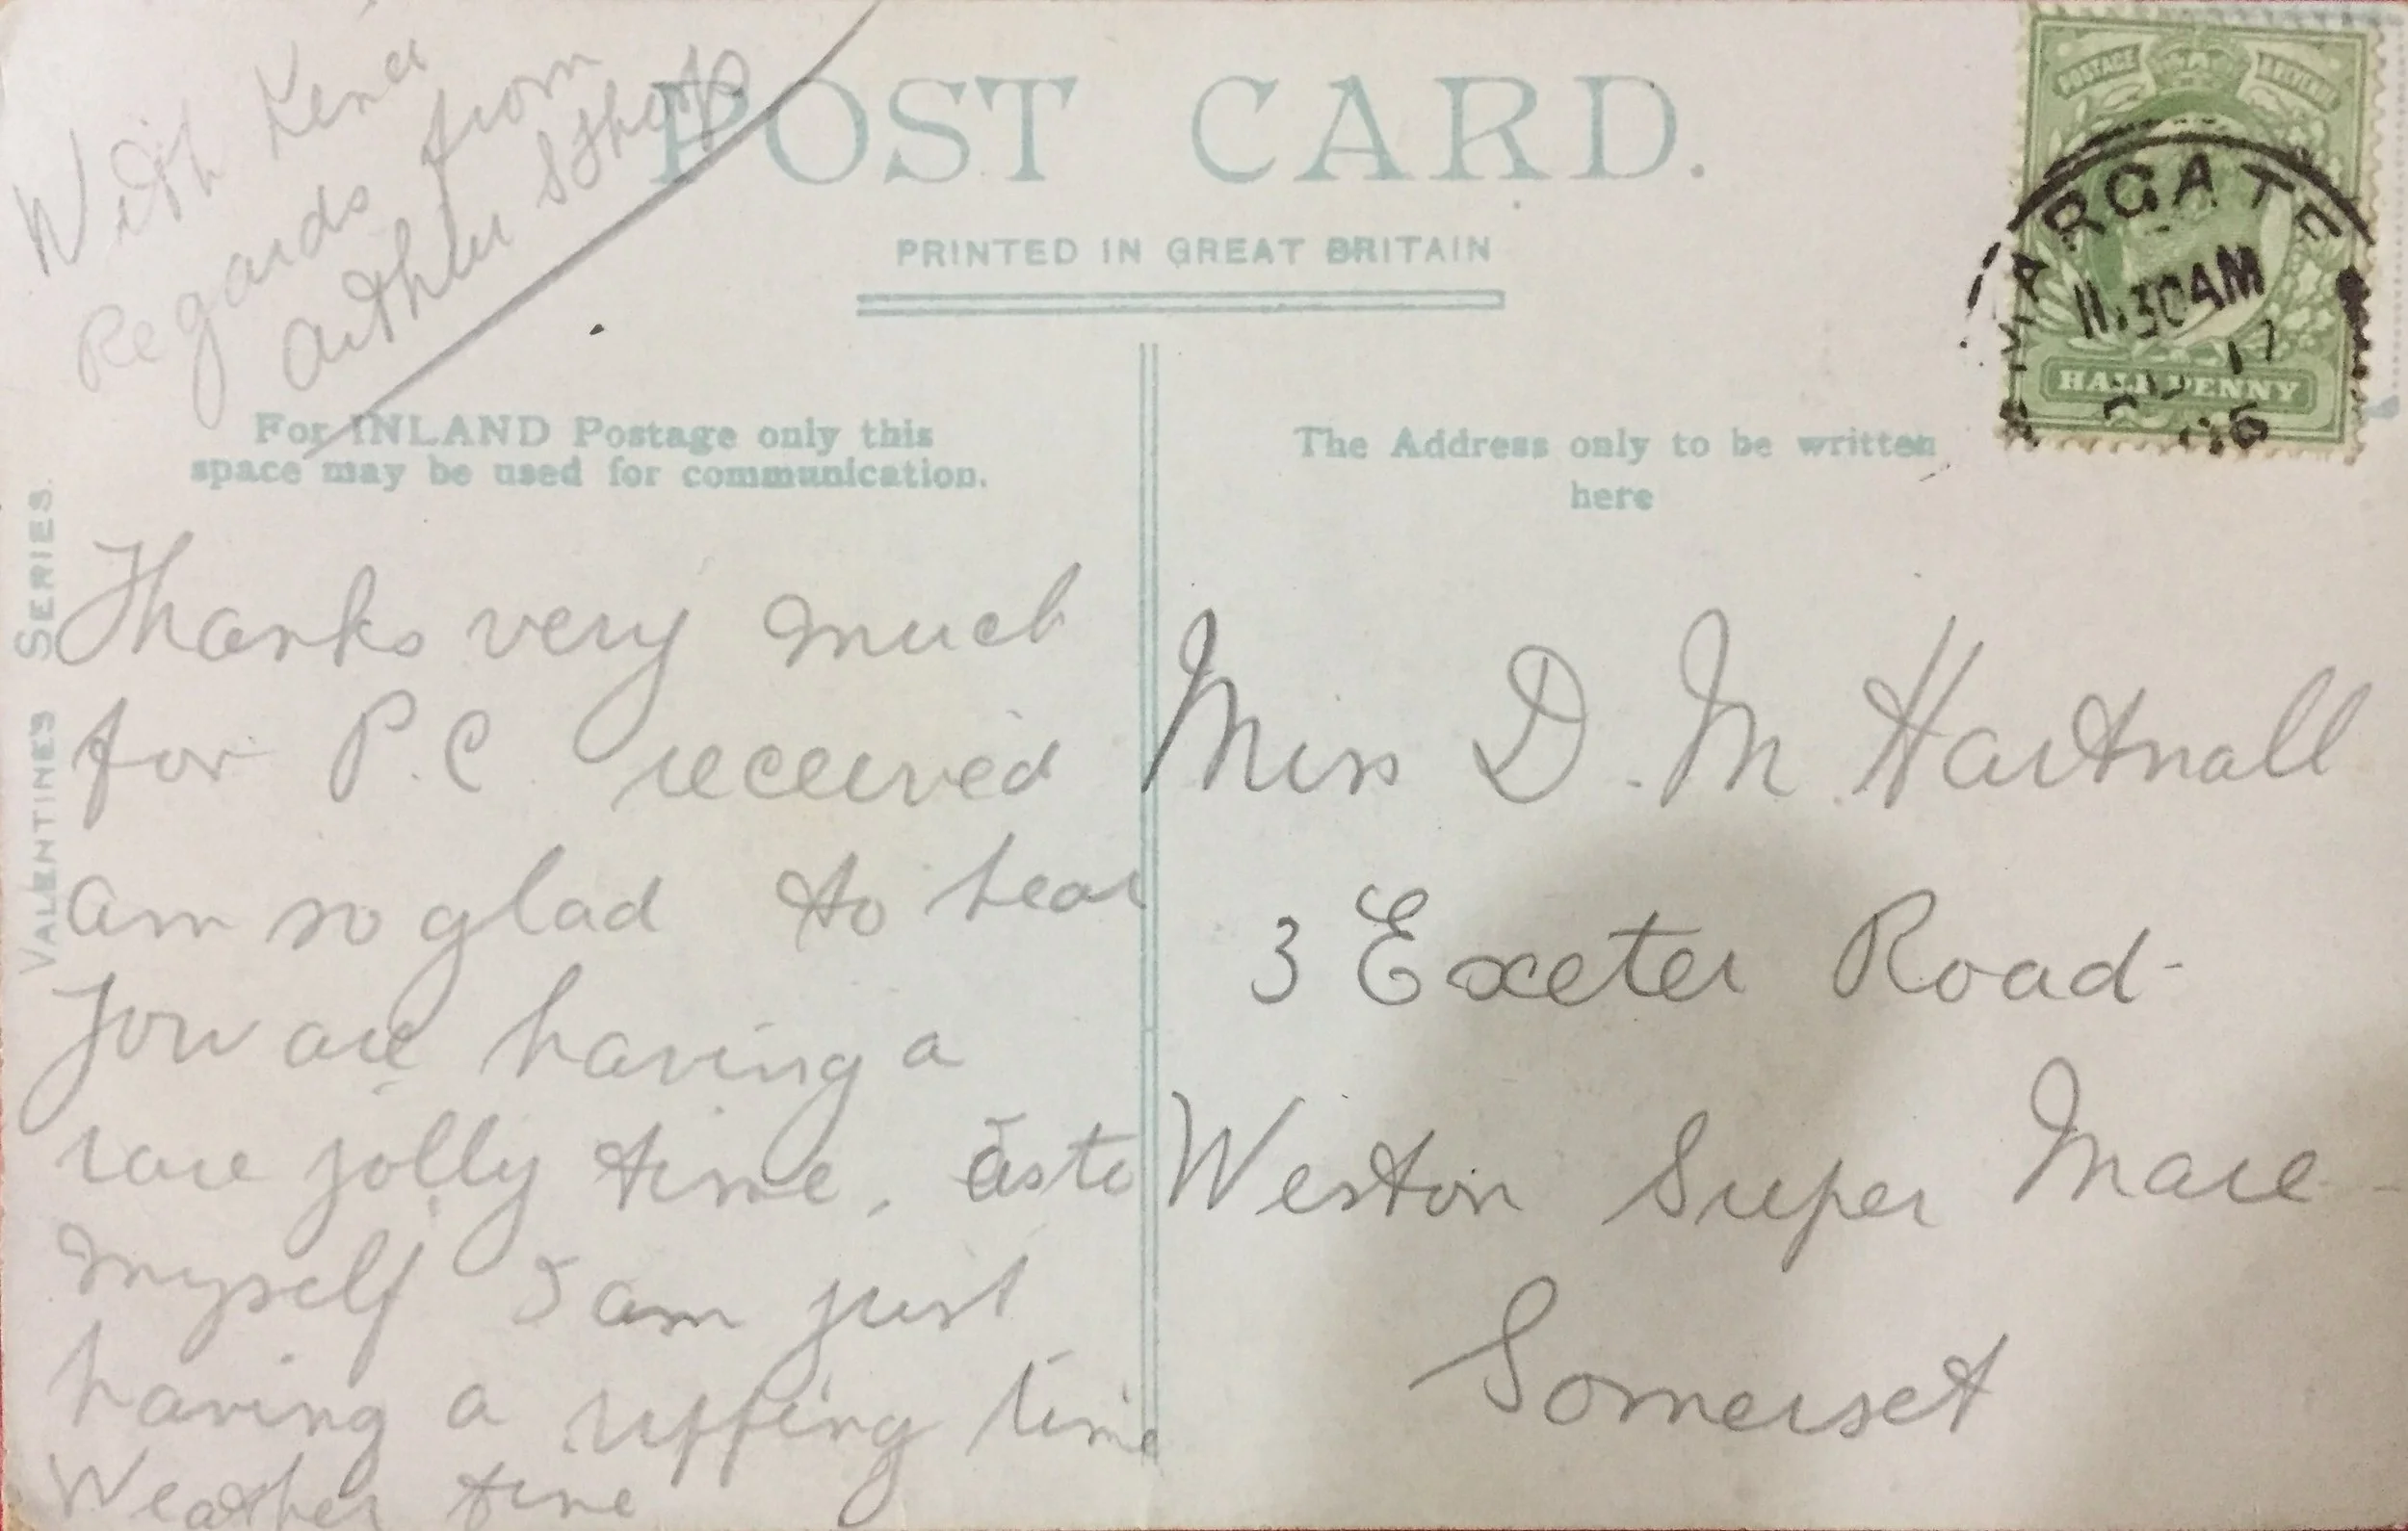 With Kind
Regards from
Arthur
POST CARD.
PRINTED IN GREAT BRITAIN
POSTAGE REVENUE
MARGATE
11.30AM
17
HALFPENNY
For INLAND Postage only this
space may be used for communication.
The Address only to be written
here
VALENTINE'S SERIES.
Thanks very much
for P.C. received
am so glad to hear
you are having a
rare jolly time. as to
myself I am just
having a ripping time
Weather fine
Miss D. M. Hartnall
3 Exeter Road-
Weston Super Mare-
Somerset